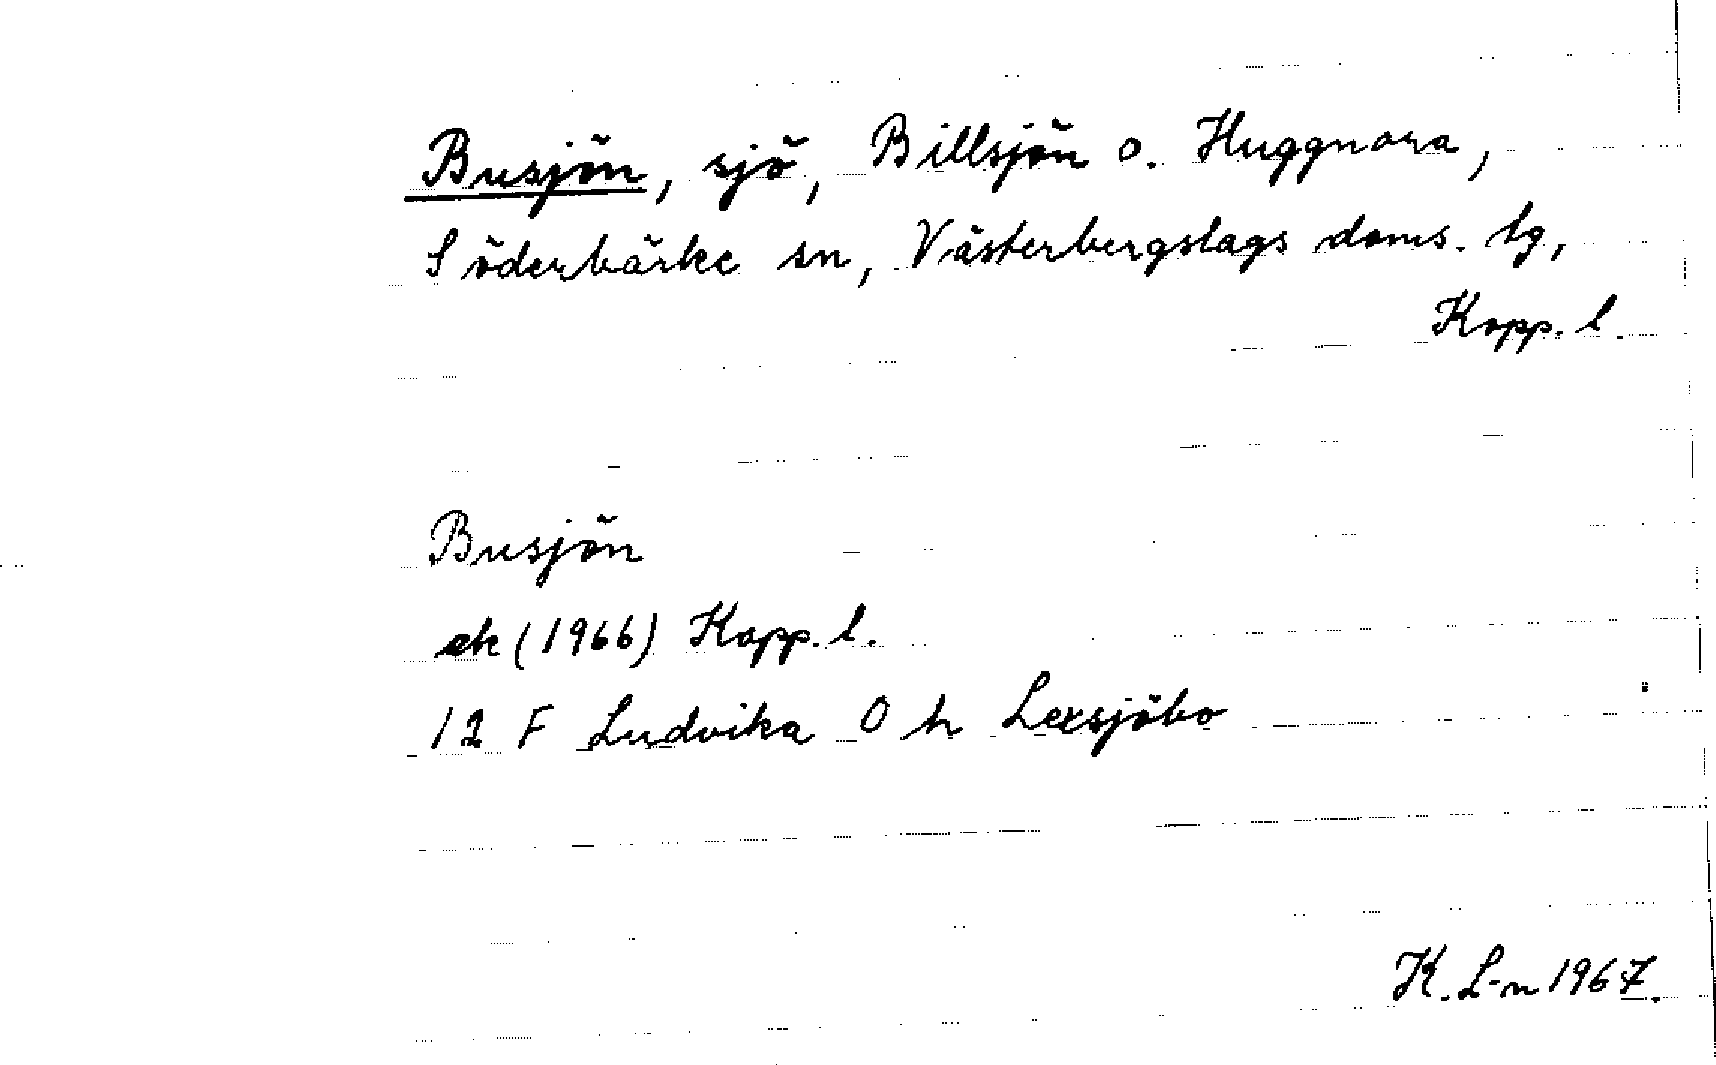 Busjön, sjö, Billsjön o. Huggnora,
Söderbärke sn, Västerbergslags doms. lg,
Kopp. l.
Busjön
ek (1966) Kopp. l.
12 F Ludvika 0 h Lexsjöbo
K. L-n 1967.